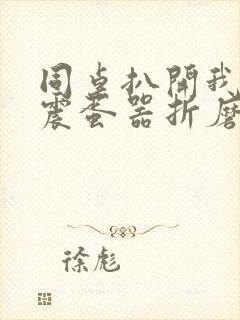 同桌扒開我
震蛋器折磨
徐彪